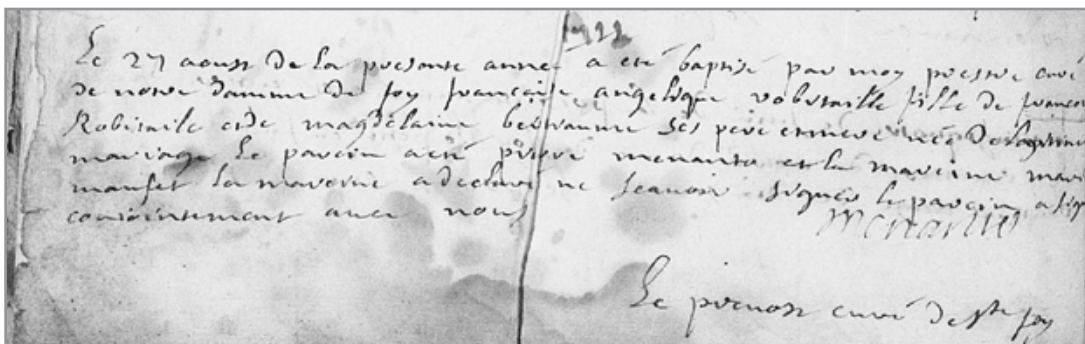 Le 27 aoust de la presente anné a eté baptisé par moy prestre curé
de notre damme de foy francoise angelique robitaille fille de francois
Robitaile et de magdelaine betraume ses pere et mere néé de legitime
mariage le parein a eté pierre menante et la mareine marie
manfet la mareine a declaré ne scauoir signer le parein a sig
conjointement auec nous
menante
Le preuost curé de ste foy